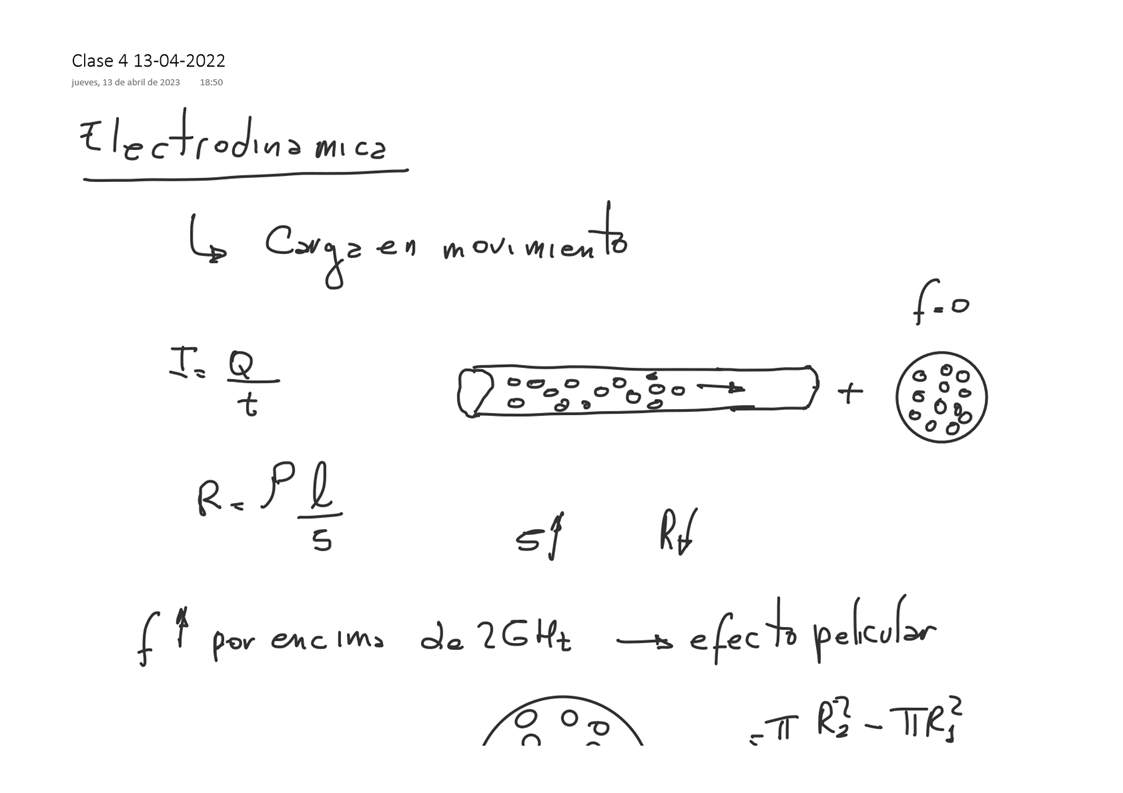 Clase 4 13-04-2022
jueves, 13 de abril de 2023 18:50
Electrodinamica
↳ Carga en movimiento
f=0
I= Q/t
+
R= ρ l/s
s↑ R↓
f↑ por encima de 2GHz → efecto pelicular
=π R₂² - πR₁²